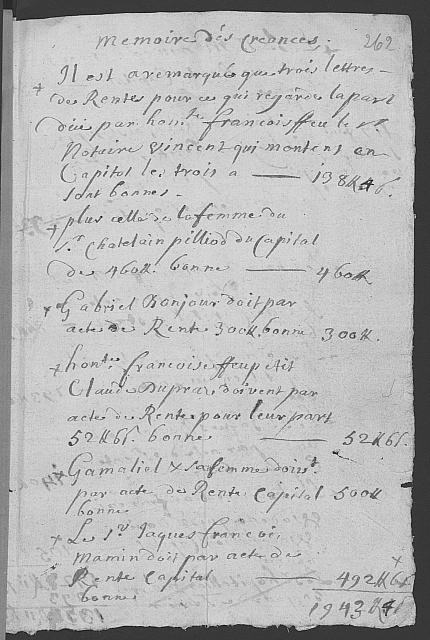 Memoire dés Creances. 262
+ Il est a remarqué que trois lettres
de Rentes pour ce qui regarde la part
düe par hon.te francoise ffeu le Sr.
Notaire Vincent qui montent en
Capital les trois a — 138 ₶ 4 6.
sont bonnes -
+ plus celle de la femme du
Sr. Chatelain pilliod du Capital
de 460 ₶. bonne — 460 ₶
+ Gabriel Bonjour doit par
acte de Rente 300 ₶. bonne 300 ₶.
+ hon.te francoise ffeu petit
Claude Dupraz doivent par
acte de Rente pour leur part
52 ₶ 6 s. bonne — 52 ₶ 6 s.
Gamaliel x sa femme doiv.t
par acte de Rente Capital 500 ₶
bonne
x Le Sr. Jaques francois
Mamin doit par acte de
Rente Capital — 492 ₶ 6 s
bonne
1943 ₶ 4